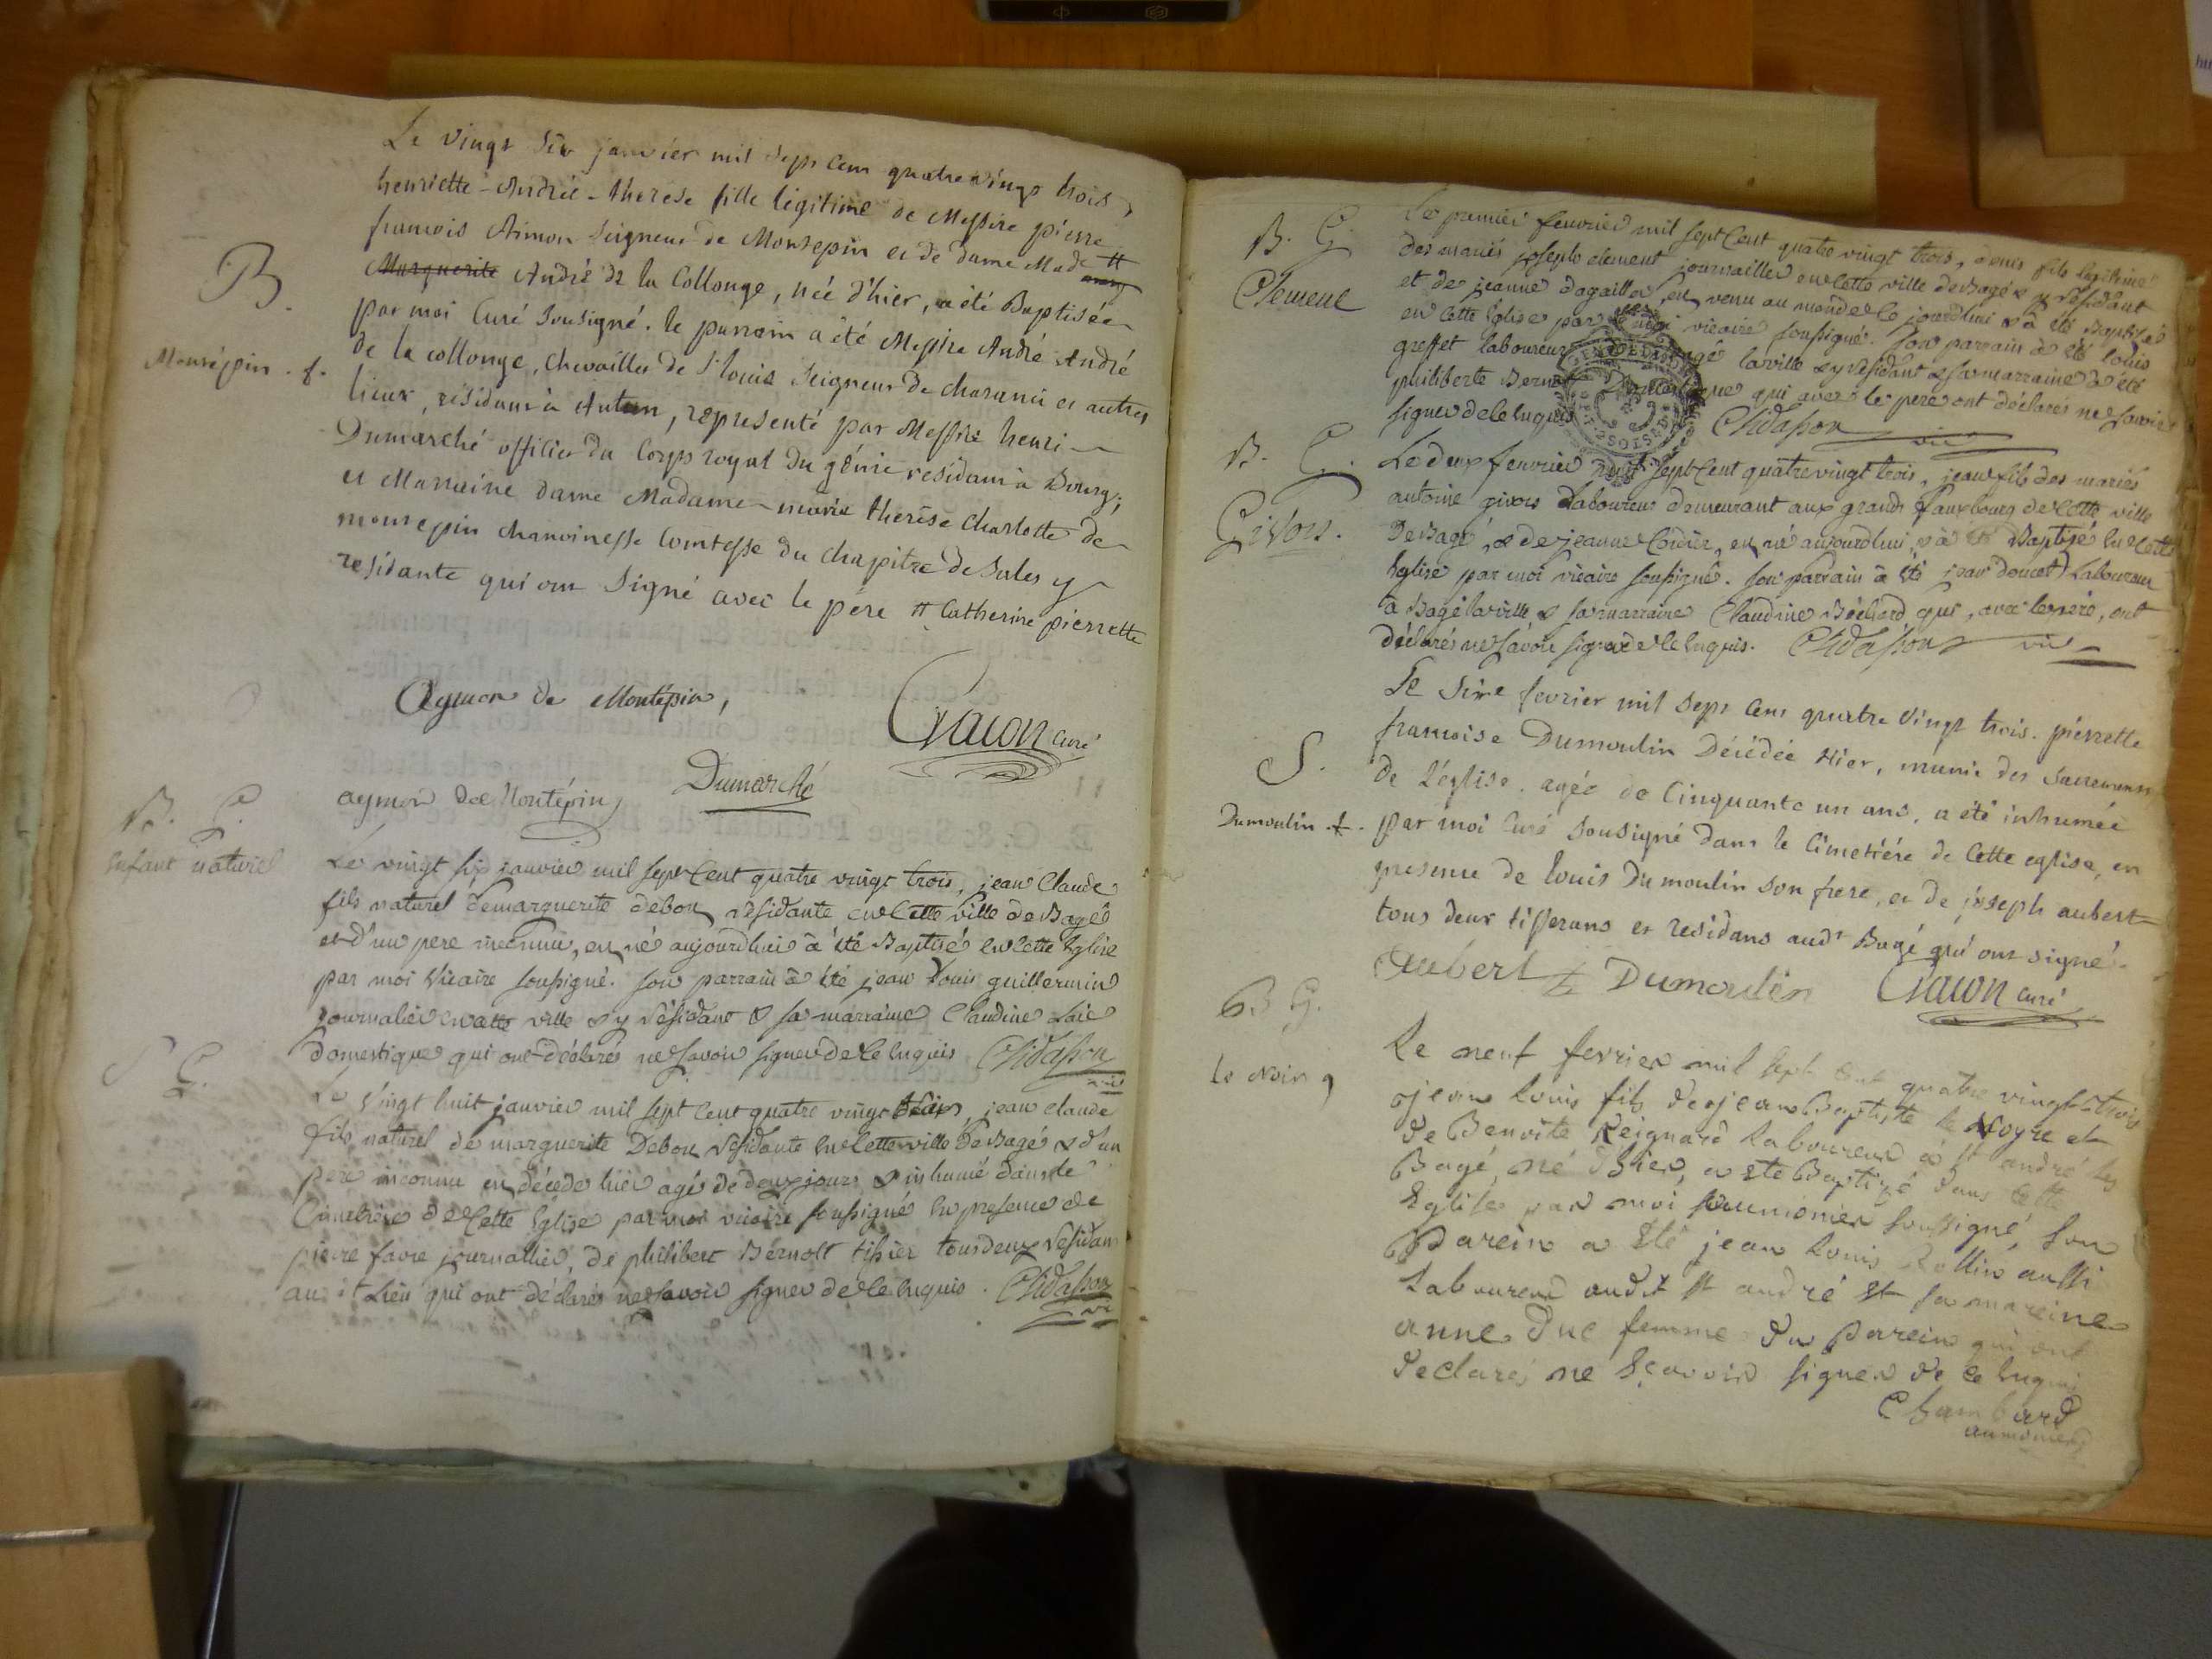 Le vingt six janvier mil sept cent quatre vingt trois,
henriette-Andrée-therese fille légitime de Messire pierre
francois Aimon Seigneur de Montepin et de dame Made #
Marguerite André de la Collonge, née d'hier, a été Baptisée
par moi Curé Sousigné. le parrain a été Messire André André
de la collonge, chevailler de St louis Seigneur de charanui et autres
lieux, résidant à Autun, representé par Messire henri
Dumarché officier du Corps royal du génie residant à Bourg;
et Marraine dame Madame-marie therèse charlotte de
montepin chanoinesse Comtesse du chapitre de Sales y
residante qui ont Signé avec le pére # Catherine pierrette
B.
Montépin . f.
Aymon de Montépin,
Gacon curé
Dumarché
aymon de Montépin
B. G.
Enfant naturel
Le vingt six janvier mil sept cent quatre vingt trois, jean Claude
fils naturel de marguerite debou résidante en cette ville de Bagé
et d'un pere inconnu, en né aujourdhui à été Baptisé en cette Eglise
par moi vicaire soussigné. son parrain à été jean Louis guillermin
journalier en cette ville & y résidant & sa marraine Claudine Laïc
domestique qui ont déclarés ne savoir signer de ce enquis Chidasson
vic
S G.
Le vingt huit janvier mil sept cent quatre vingt trois, jean claude
fils naturel de marguerite Debou résidante en cette ville de Bagé & d'un
pere inconnu en décédé hier agé de deux jours & inhumé dans le
Cimetière de cette Eglise par moi vicaire soussigné en presence de
pierre favre journallier, de philibert Bernolt tissier tous deux résidans
au dt Lieu qui ont déclarés ne savoir signer de ce enquis. Chidasson
vi
B. G.
Clement
Le premier fevrier mil sept cent quatre vingt trois, denis fils legitime
des mariés joseph clement journallier en cette ville de Bagé & y résidant
et de jeanne dagallier, en venu au monde le jourdhui & à été Baptisé
en cette Eglise par moi vicaire soussigné. son parrain à été louis
greffet laboureur Bagé la ville & y résidant & sa marraine à été
philiberte Bernolt domestique qui avec le pere ont déclarés ne savoir
signer de ce enquis Chidasson vic
B. G.
Givors.
Le deux fevrier mil sept cent quatre vingt trois, jean fils des mariés
antoine givors Laboureur demeurant aux grand fauxbourg de cette ville
De Bagé, & de jeanne Cordier, en né aujourdhui, & à été Baptisé en cette
Eglise par moi vicaire soussigné. son parrain à été jean doucet Laboureur
à Bagé la ville & sa marraine Claudine Béchard qui, avec le pere, ont
déclarés ne savoir signer de ce enquis. Chidasson vic
S.
Dumoulin . f.
Le Sixe fevrier mil sept cent quatre vingt trois. pierrette
francoise Dumoulin Décédée Hier, munie des Sacremens
de l'église. agée de Cinquante un ans, a été inhumée
par moi Curé Sousigné dans le Cimetiére de Cette eglise, en
presence de louis Dumoulin son frere, et de joseph aubert
tous deux tisserans et residans audt Bagé qui ont signé.
Aubert Dumoulin Gacon curé
B G.
Le Noir g
Le neuf fevrier mil sept cent quatre vingt trois
jean Louis fils de jean Baptiste le Noyre et
de Benoite Reignard Laboureur à St andré les
Bagé, né d'hier, a été Baptizé dans cette
Eglise par moi aumonier soussigné, Son
Parein a été jean Louis Rollin aussi
Laboureur audit St andré et sa mareine
anne Duc femme du Parein qui ont
declarés ne sçavoir signer de ce enquis
Chambard
aumonier